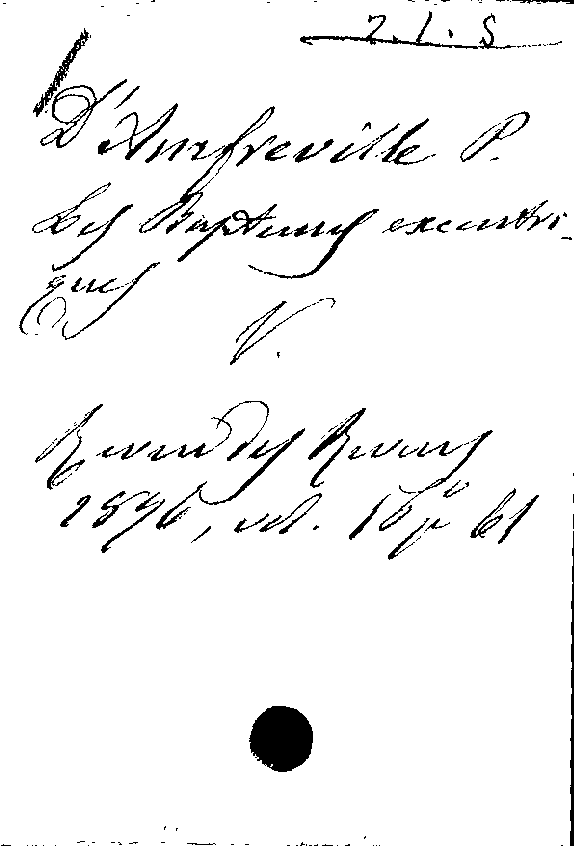 7.1.S
D'Amfreville P.
Les Baptemes excentri-
ques
V.
Revue des Revues
1896, vol. 16 p. 61